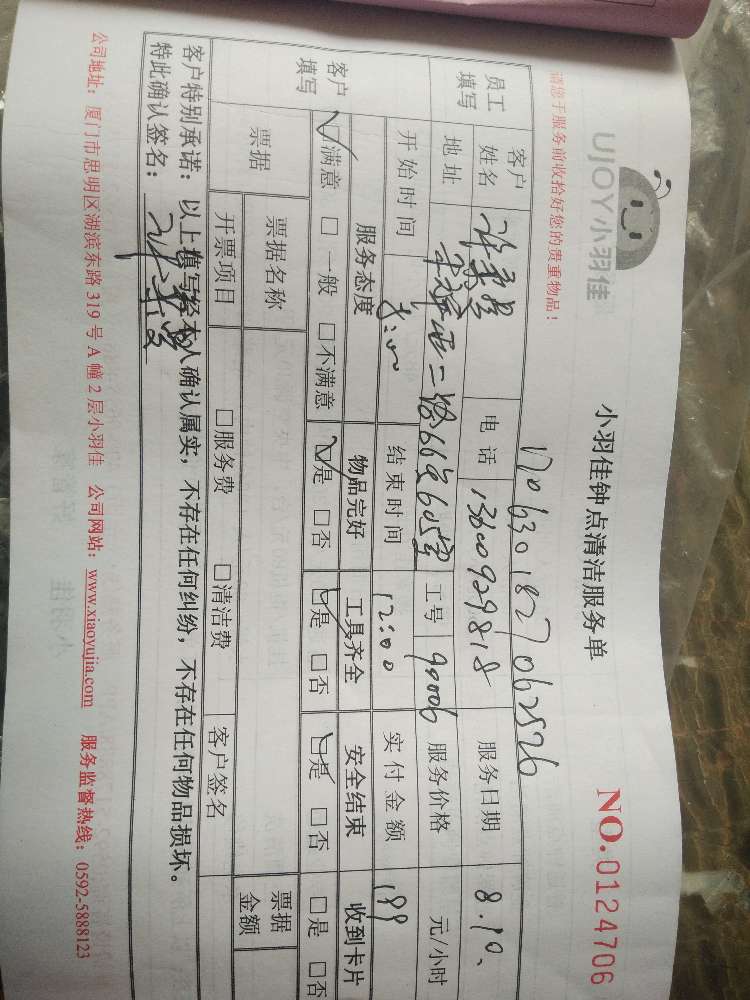 UJOY小羽佳
小羽佳钟点清洁服务单
NO.0124706
请您于服务前收拾好您的贵重物品！
1706301827062526
员工填写 客户姓名 电话 13600929818 服务日期 8.10.
地址 二路66号605室 工号 99006 服务价格 元/小时
客户填写 开始时间 结束时间 12:00 实付金额 199
服务态度 物品完好 工具齐全 安全结束 收到卡片
☑满意 □一般 □不满意 ☑是 □否 ☑是 □否 ☑是 □否 □是 □否
票据 票据名称 票据金额
开票项目 □服务费 □清洁费 客户签名
客户特别承诺：以上填写经本人确认属实，不存在任何纠纷，不存在任何物品损坏。
特此确认签名：
公司地址：厦门市思明区湖滨东路319号A幢2层小羽佳 公司网站：www.xiaoyujia.com 服务监督热线：0592-5888123